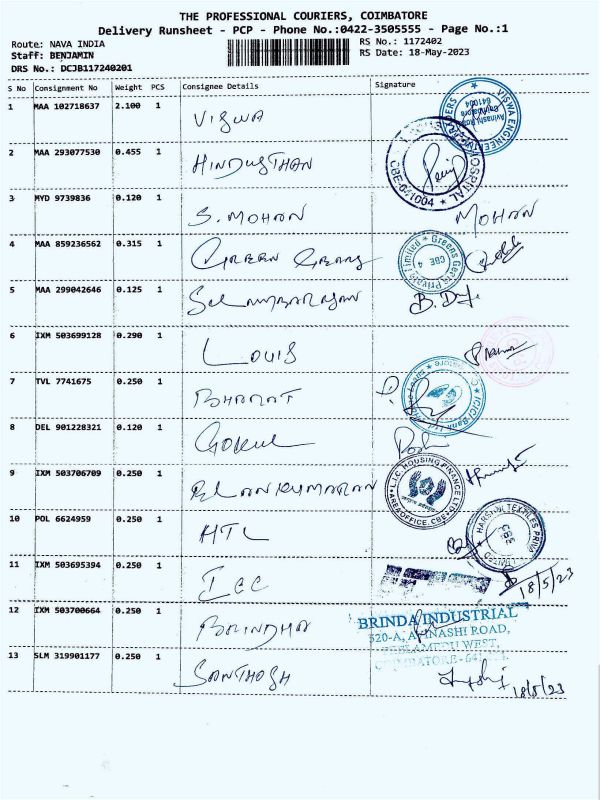 THE PROFESSIONAL COURIERS, COIMBATORE
Delivery Runsheet - PCP - Phone No.:0422-3505555 - Page No.:1
Route: NAVA INDIA
Staff: BENJAMIN
DRS No.: DCJB117240201
RS No.: 1172402
RS Date: 18-May-2023
S No Consignment No Weight PCS Consignee Details Signature
1 MAA 102718637 2.100 1 VISWA
VISWA ENGINEERING TRADERS
Avinashi Road
Coimbatore
641004
2 MAA 293077530 0.455 1 HINDUSTHAN
HOSPITAL ★ CBE-641004 ★
3 MYD 9739836 0.120 1 S. MOHAN MOHAN
4 MAA 859236562 0.315 1 GREEN GEARS
Greens Gears Private Limited ★
CBE 4
5 MAA 299042646 0.125 1
6 IXM 503699128 0.290 1 LOUIS
7 TVL 7741675 0.250 1 BHARAT
ICICI Bank Ltd
8 DEL 901228321 0.120 1 GOKUL
9 IXM 503706709 0.250 1 ELANKUMARAN
L.I.C. HOUSING FINANCE LTD
AREA OFFICE, CBE
10 POL 6624959 0.250 1 HTL
HARSHNI TEXTILES PRIVATE LIMITED
CBE
11 IXM 503695394 0.250 1 ICC
18/5/23
12 IXM 503700664 0.250 1 BRINDHA
BRINDA INDUSTRIAL
520-A, AVINASHI ROAD,
PEELAMEDU WEST,
COIMBATORE
13 SLM 319901177 0.250 1 SANTHOSH
18/5/23